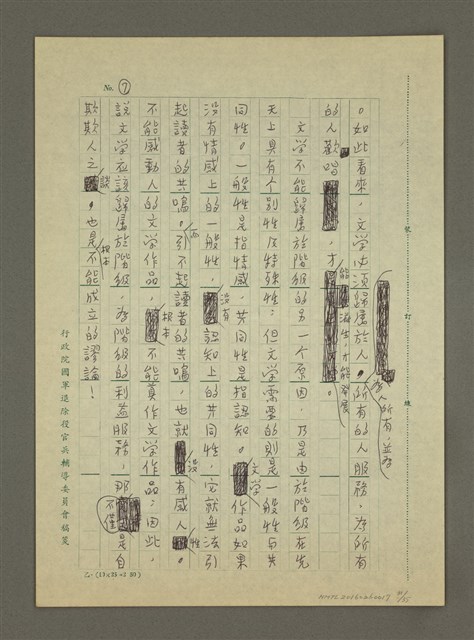 No. 7
。如此看來，文学必須歸屬於人，為人所有，並為所有的人服務，為所有
的人歡唱，才能滋生，才能發展。
文学不能歸屬於階級的另一个原因，乃是由於階級在先
天上具有个別性及特殊性；但文学需要的則是一般性与共
同性。一般性是指情感，共同性是指認知。文学作品如果
沒有情感上的一般性，沒有認知上的共同性，它就無法引
起讀者的共鳴。引不起讀者的共鳴，也就沒有感人性。
不能感動人的文学作品，根本不能算作文学作品；因此，
說文学应該歸屬於階級，為階級的利益服務，那不僅是自
欺欺人之談，也是根本不能成立的謬論！
裝 訂 線
行政院國軍退除役官兵輔導委員會稿箋